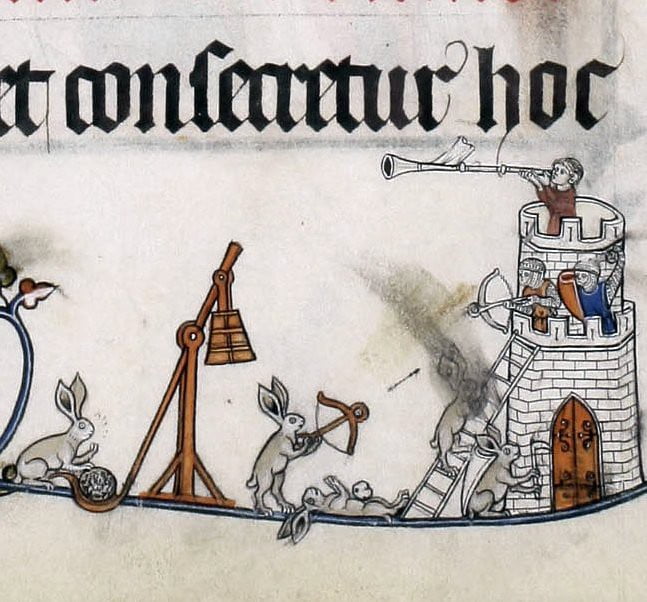 et conſecretur hoc